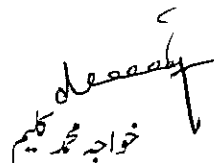 خواجہ محمد کلیم